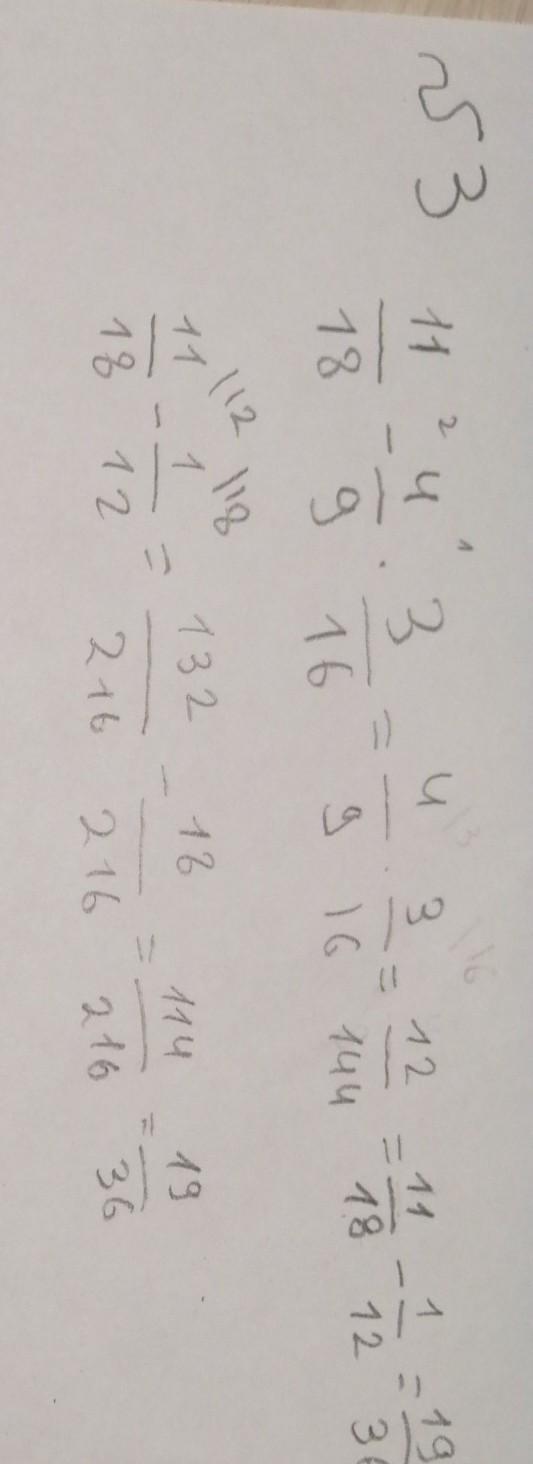 №3
11/18 - 4/9 · 3/16 = 4/9 · 3/16 = 12/144 = 11/18 - 1/12 = 19/36
11/18 \12 - 1/12 \18 = 132/216 - 18/216 = 114/216 = 19/36